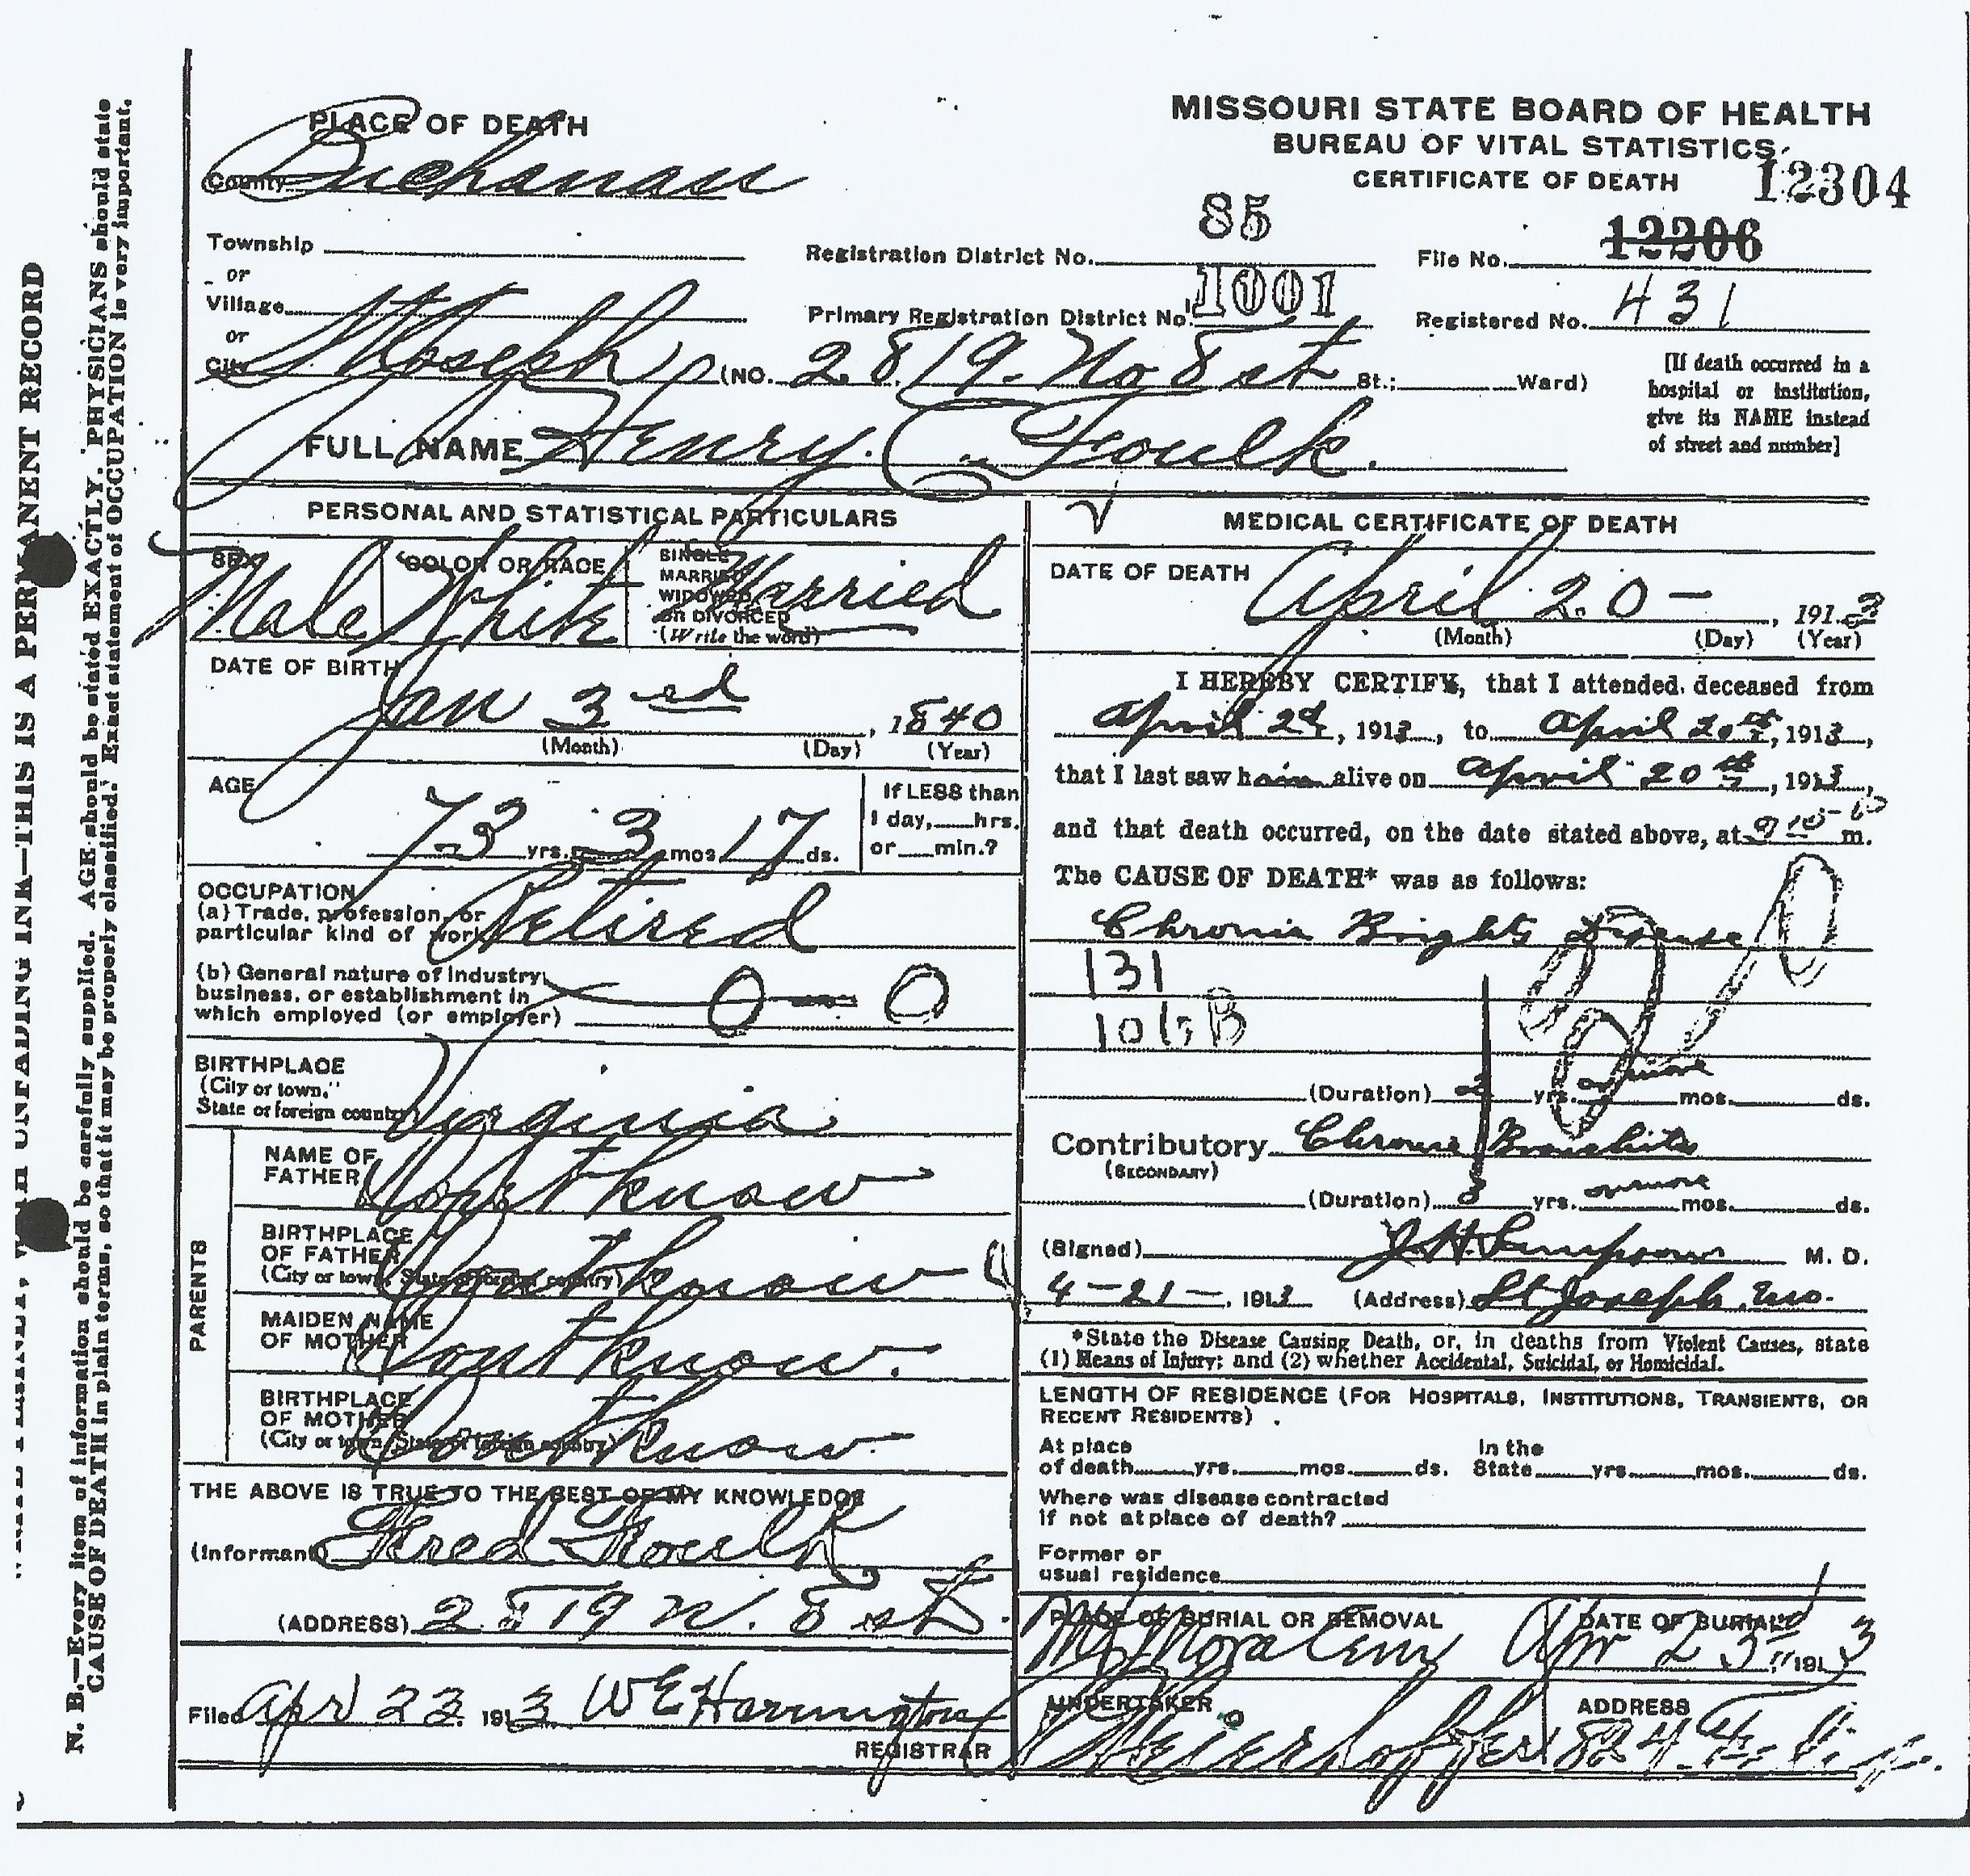 MISSOURI STATE BOARD OF HEALTH
BUREAU OF VITAL STATISTICS
CERTIFICATE OF DEATH
12304
PLACE OF DEATH
County Buchanan
Township
or
Village
or
City St Joseph (NO. 2819. No 8 st St.; Ward)
Registration District No. 85
Primary Registration District No. 1001
File No. 12206
Registered No. 431
[If death occurred in a
hospital or institution,
give its NAME instead
of street and number]
FULL NAME Henry. C. Foulk.
PERSONAL AND STATISTICAL PARTICULARS
SEX Male
COLOR OR RACE White
SINGLE
MARRIED
WIDOWED
OR DIVORCED
(Write the word)
Married
DATE OF BIRTH
Jan 3 ed, 1840
(Month) (Day) (Year)
AGE
73 yrs. 3 mos 17 ds.
If LESS than
1 day, hrs.
or min.?
OCCUPATION
(a) Trade, profession, or
particular kind of work Retired
(b) General nature of industry
business, or establishment in
which employed (or employer) 0 — 0
BIRTHPLACE
(City or town,
State or foreign country) Virginia
PARENTS
NAME OF
FATHER Dont know
BIRTHPLACE
OF FATHER
(City or town, State or foreign country) Dont know
MAIDEN NAME
OF MOTHER Dont know.
BIRTHPLACE
OF MOTHER
(City or town, State or foreign country) Dont know.
THE ABOVE IS TRUE TO THE BEST OF MY KNOWLEDGE
(Informant) Fred Foulk
(ADDRESS) 2819 N. 8 st.
Filed Apr 23, 1913 WE Harrington
REGISTRAR
MEDICAL CERTIFICATE OF DEATH
DATE OF DEATH April 20 —, 1913
(Month) (Day) (Year)
I HEREBY CERTIFY, that I attended deceased from
April 2d, 1913, to April 20th, 1913,
that I last saw him alive on April 20th, 1913,
and that death occurred, on the date stated above, at m.
The CAUSE OF DEATH* was as follows:
Chronic Brights Disease
131
(Duration) 2 yrs. or more mos. ds.
Contributory Chronic Bronchitis
(SECONDARY)
(Duration) 3 yrs. or more mos. ds.
(Signed) J.H. Simpson M. D.
4-21-, 1913 (Address) St Joseph. Mo.
*State the Disease Causing Death, or, in deaths from Violent Causes, state
(1) Means of Injury; and (2) whether Accidental, Suicidal, or Homicidal.
LENGTH OF RESIDENCE (FOR HOSPITALS, INSTITUTIONS, TRANSIENTS, OR
RECENT RESIDENTS).
At place
of death yrs. mos. ds.
In the
State yrs. mos. ds.
Where was disease contracted
if not at place of death?
Former or
usual residence
PLACE OF BURIAL OR REMOVAL
Mt Mora Cem
DATE OF BURIAL
Apr 23 1913
UNDERTAKER
Meierhoffer
ADDRESS
824
N. B.—Every item of information should be carefully supplied. AGE should be stated EXACTLY. PHYSICIANS should state
CAUSE OF DEATH in plain terms, so that it may be properly classified. Exact statement of OCCUPATION is very important.
UNFADING INK—THIS IS A PERMANENT RECORD